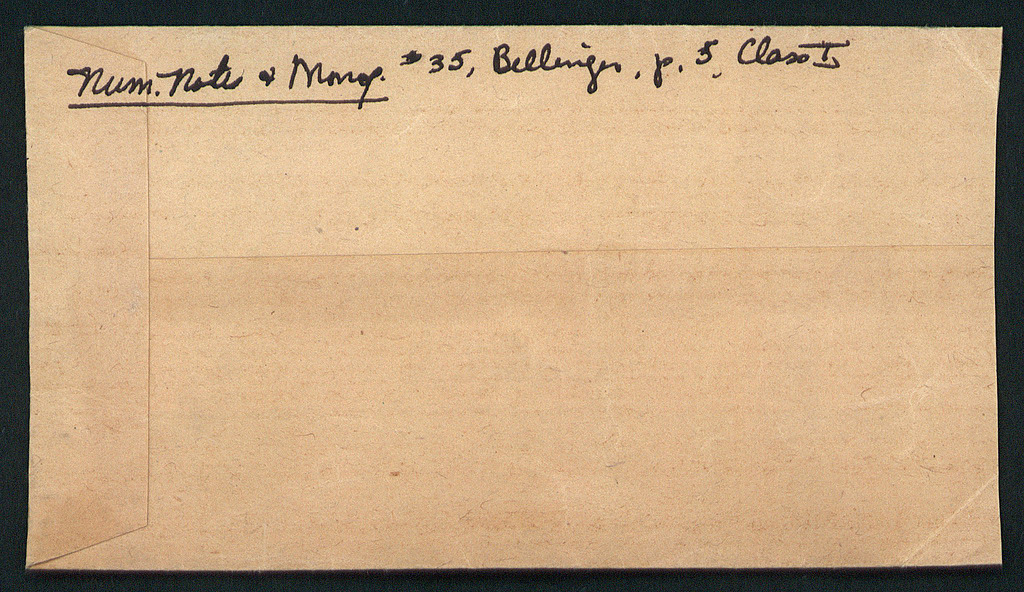 Num. Notes & Monog. #35, Bellinger, p. 5, Class I